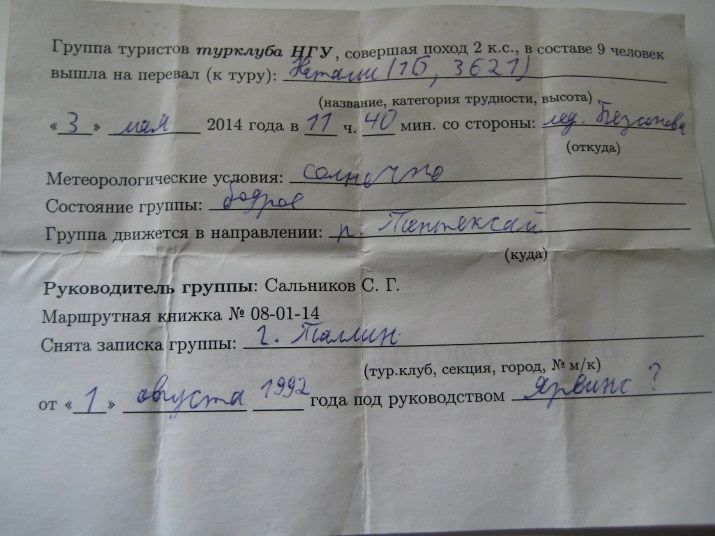 Группа туристов турклуба НГУ, совершая поход 2 к.с., в составе 9 человек
вышла на перевал (к туру): Натали (1Б, 3621)
(название, категория трудности, высота)
«3» мая 2014 года в 11 ч. 40 мин. со стороны: лед. Безсонова
(откуда)
Метеорологические условия: солнечно
Состояние группы: бодрое
Группа движется в направлении: р. Пштексай
(куда)
Руководитель группы: Сальников С. Г.
Маршрутная книжка № 08-01-14
Снята записка группы: г. Таллин
(тур.клуб, секция, город, № м/к)
от «1» августа 1992 года под руководством Ярвинс ?